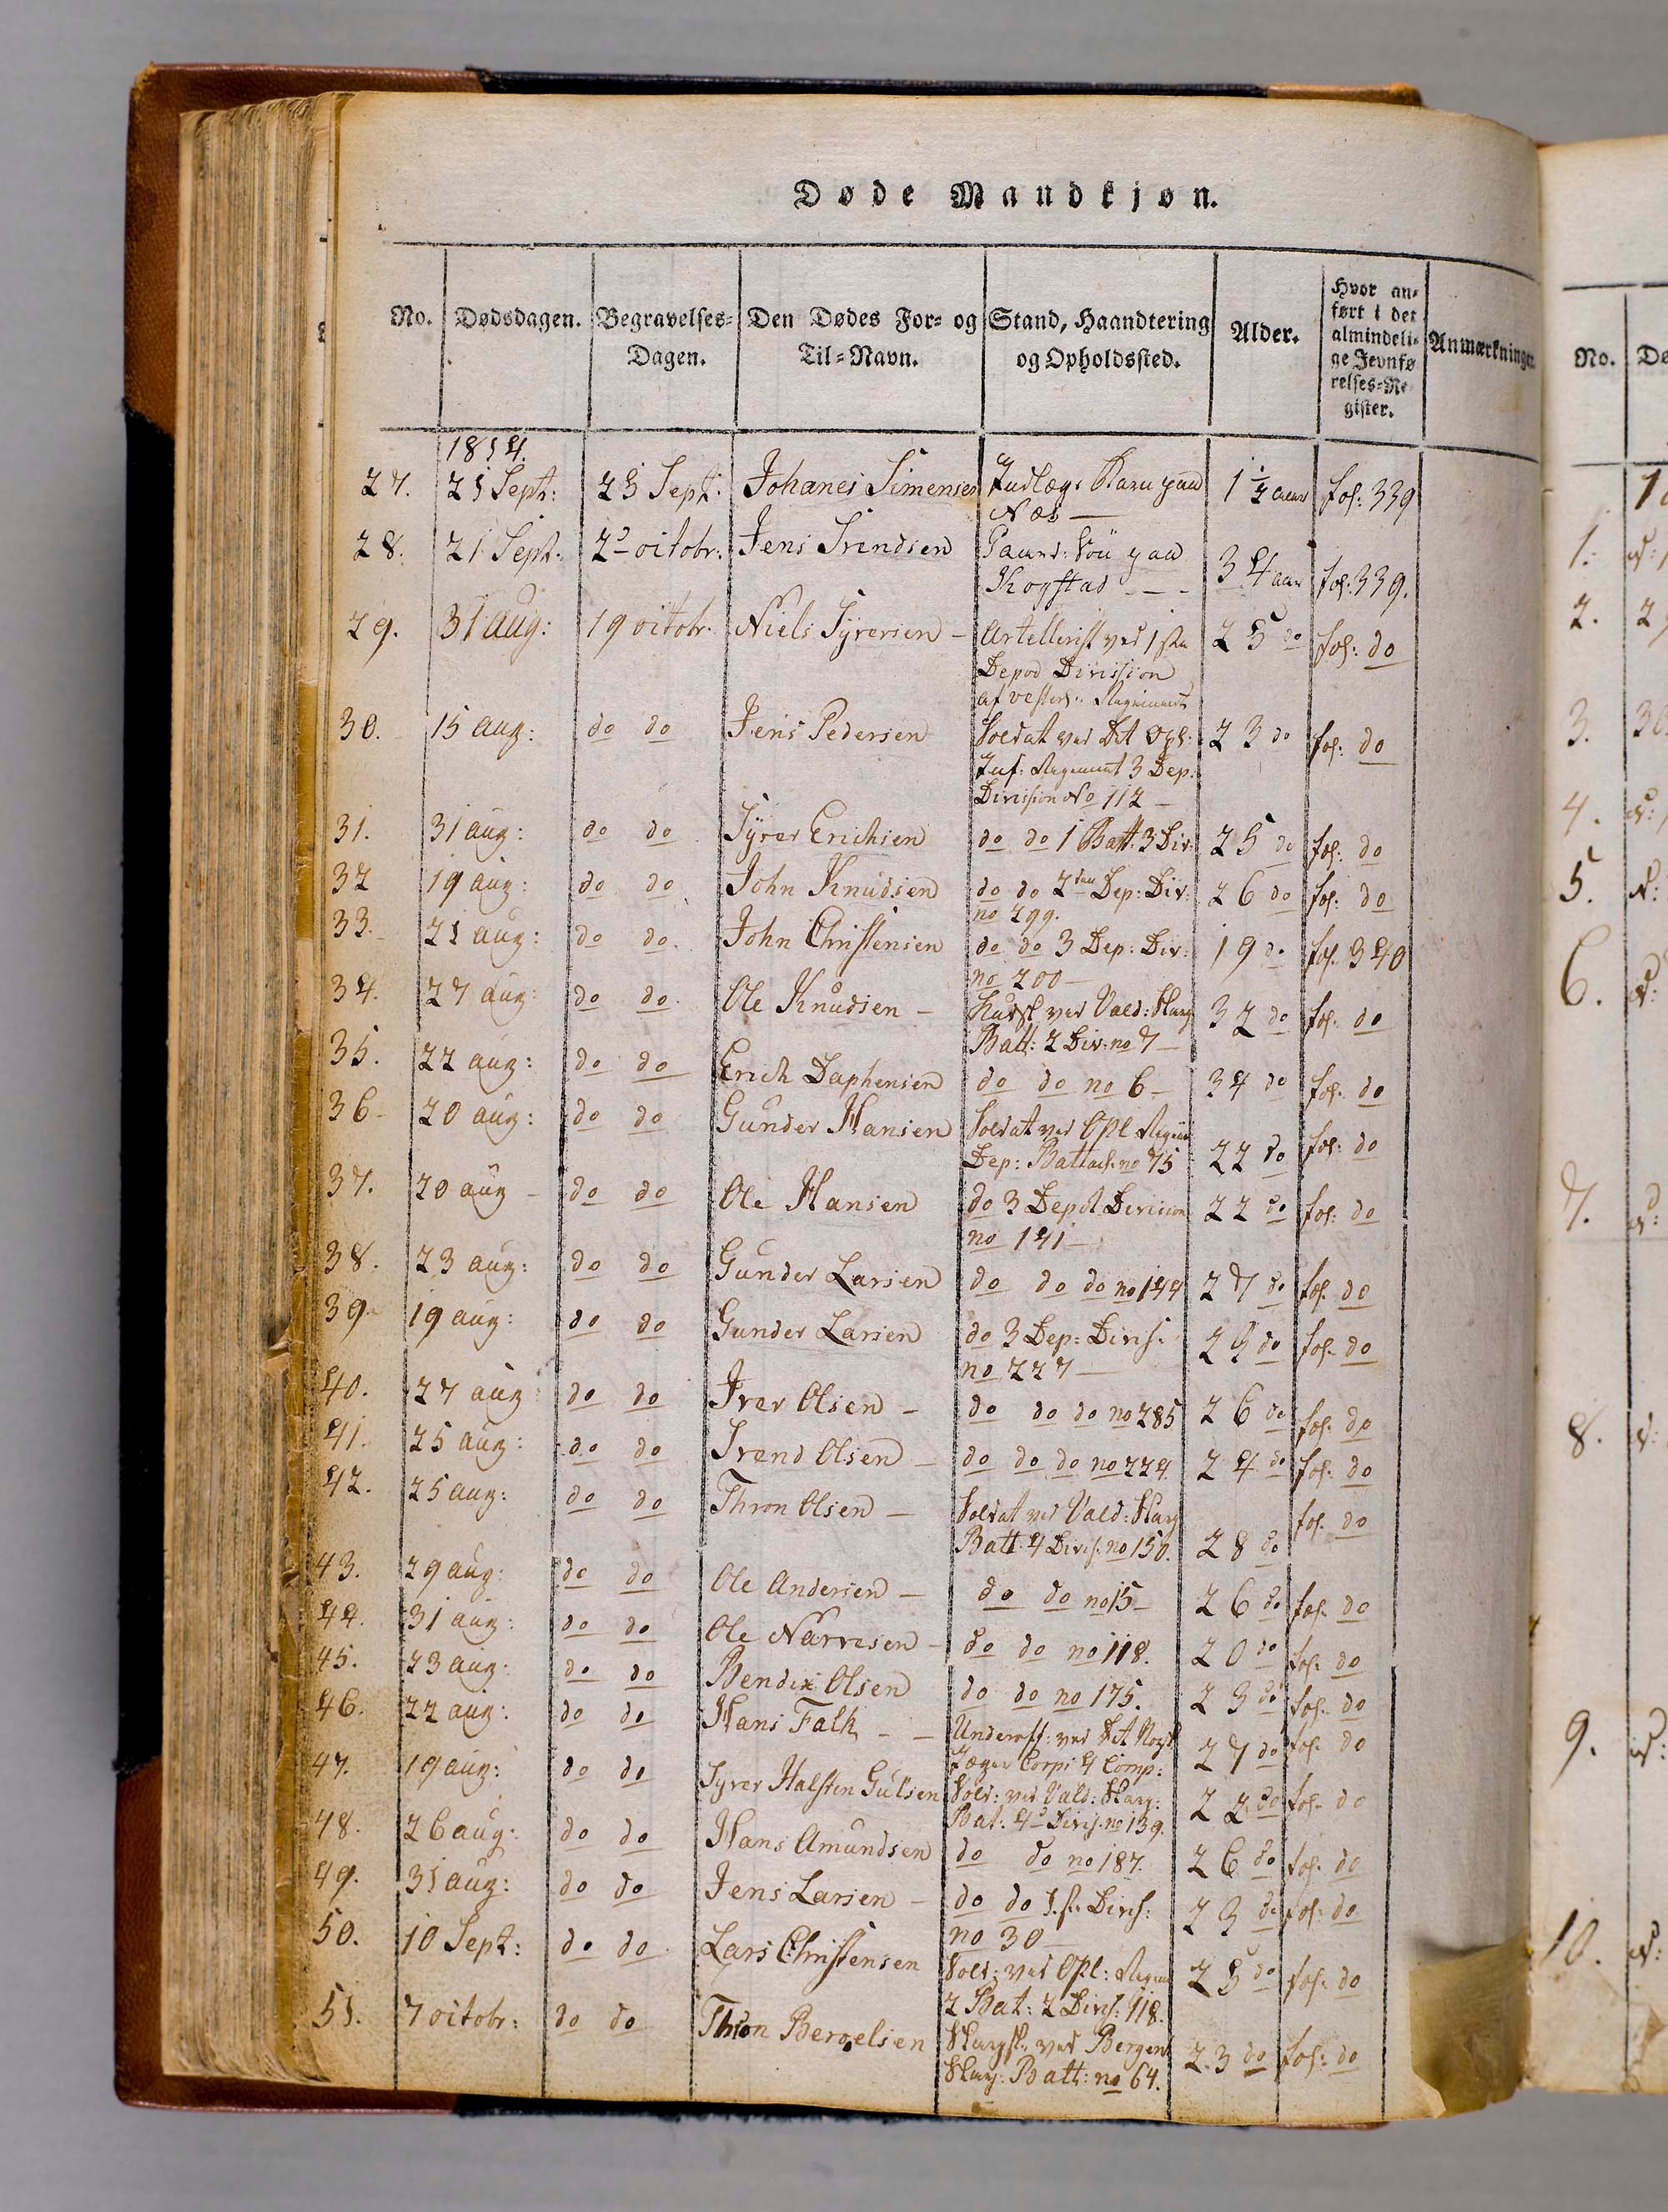 Døde Mandkjøn.
No. Dødsdagen. Begravelses- Dagen. Den Dødes For- og Til-Navn. Stand, Haandtering og Opholdssted. Alder. Hvor an- ført i det almindeli- ge Jevnfø relses-Re gister. Anmærkninger
1814.
27. 21 Sept: 23 Sept: Johanes Simensen Indlægs Barn paa 1 1/2 aar fol: 339
Næs —
28. 21 Sept: 2d octobr: Jens Svendsen Gaard: paa 34 aar fol. 339.
Kopstad - - -
29. 31 aug: 19 octobr. Niels Syversen - Artellerist ved 1ste 25 do fol: do
Depod Division
af vesterl: Regiment
30. 15 aug: do do Jens Pedersen Soldat ved Det Opl: 23 do fol: do
Inf: Regiment 3 Dep.
Division No 112 -
31. 31 aug: do do Syver Erichsen do do 1 Batt: 3 Div: 25 do fol: do
32 19 aug: do do John Knudsen do do 2den Dep: Div: 26 do fol: do
no 299.
33. 21 aug: do do John Christensen do do 3 Dep: Div: 19 do fol. 340
no 200 —
34. 27 aug: do do Ole Knudsen - ved Vald: 32 do fol. do
Batt: 2 Div: no 7 —
35. 22 aug: do do Erich Daphensen do do no 6 - 34 do fol. do
36- 20 aug: do do Gunder Hansen Soldat ved Opl Regim 22 do fol: do
Dep: Battael. no 75
37. 20 aug - do do Ole Hansen do 3 Depot Division 22 do fol: do
no 141 —
38. 23 aug: do do Gunder Larsen do do do no 144 27 do fol. do
39. 19 aug: do do Gunder Larsen do 3 Dep: Divis: 29 do fol. do
no 227 —
40. 27 aug: do do Iver Olsen - do do do no 285 26 do fol. do
41. 25 aug: do do Svend Olsen - do do do no 224. 24 do fol. do
42. 25 aug: do do Thron Olsen - Soldat ved Vald: Skarp 28 do fol. do
Batt: 4 Divis. no 150.
43. 29 aug: do do Ole Andersen - do do no 15 - 26 do fol. do
44. 31 aug: do do Ole Narvesen - do do no 118. 20 do fol: do
45. 23 aug: do do Bendix Olsen do do no 175. 23 do fol. do
46. 22 aug: do do Hans Falk - - Underoff: ved Det Norske 27 do fol. do
Jæger Corps 4 Comp:
47. 19 aug: do do Syver Halsten Gulsen Sold: ved Vald: Skarp: 22 do fol. do
Bat: 4d Divis. no 139.
48. 26 aug: do do Hans Amundsen do do no 187. 26 do fol. do
49. 31 aug: do do Jens Larsen - do do 1ste Divis: 23 do fol: do
no 30 —
50. 10 Sept: do do Lars Christensen Sold: ved Opl: Regim 25 do fol. do
2 Bat: 2 Divis: 118.
51. 7 octobr: do do Thron Bergelsen ved Bergens 23 do fol: do
Skarp: Batt: no 64.
No. De
1:
2.
3. 30
4.
5.
6.
7.
8.
9.
10.